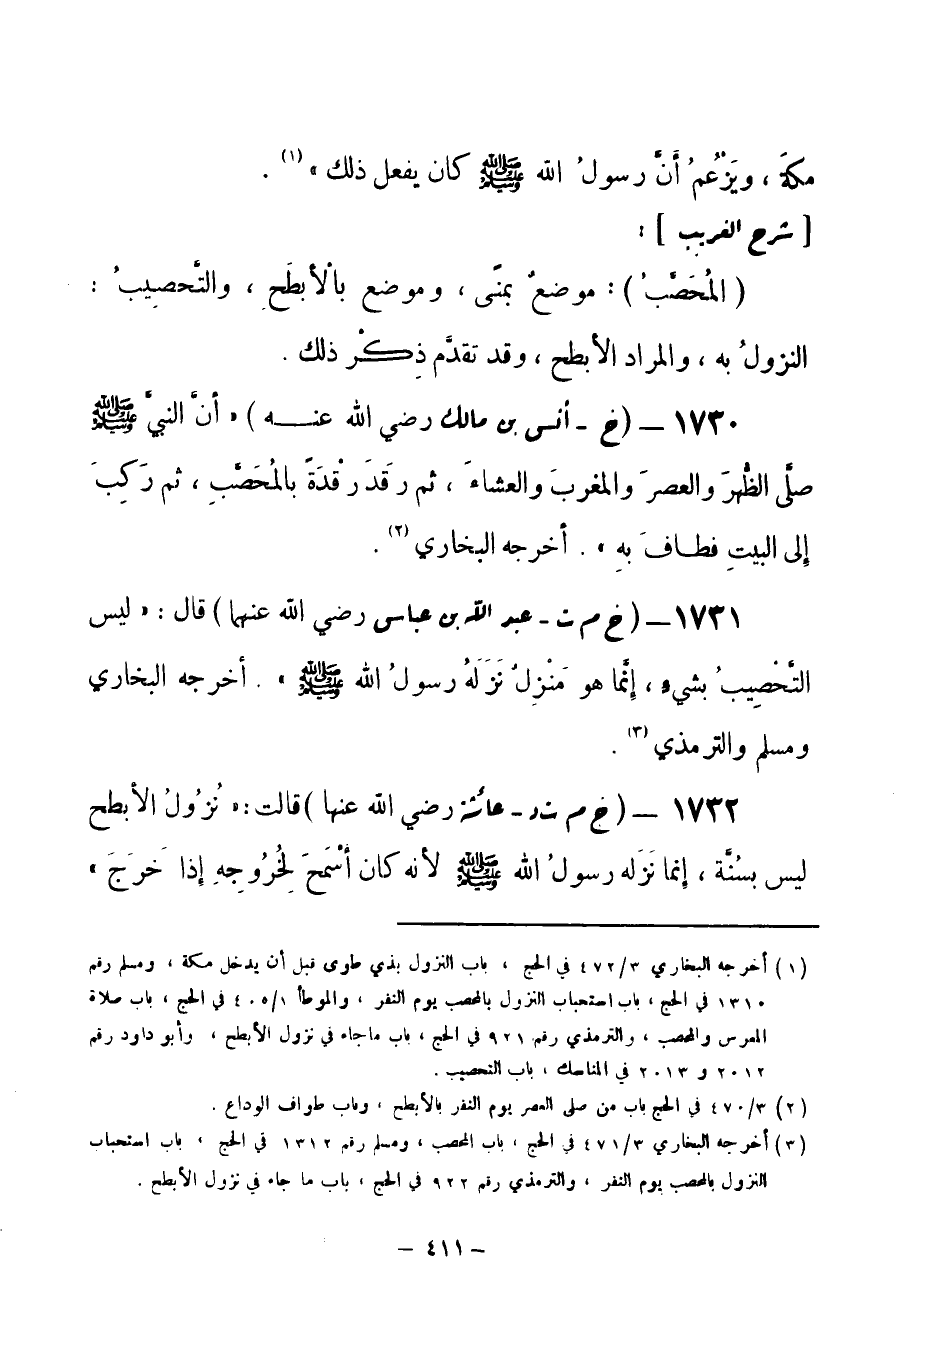 مكةَ ، ويَزْعُمُ أَنَّ رسولُ الله ﷺ كان يفعل ذلك » (١) .
[ شرح الغريب ] :
( المُحَصَّبُ ) : موضعٌ بمنًى ، وموضع بالْأبطَحِ ، والتَّحصيبُ :
النزولُ به ، والمراد الأبطح ، وقد تقدَّم ذِكْر ذلك .
١٧٣٠ – ( خ - أنس بن مالك رضي الله عنه ) « أنَّ النبيَّ ﷺ
صلَّى الظُّهرَ والعصرَ والمغربَ والعشاءَ ، ثم رقَدَ رقْدَةً بالمُحَصَّبِ ، ثم ركِبَ
إلى البيتِ فطافَ بهِ » . أخرجه البخاري (٢) .
١٧٣١ – ( خ م ت - عبد الله بن عباس رضي الله عنهما ) قال : « ليس
التَّحْصِيبُ بشيء ، إنَّما هو مَنْزِلٌ نَزَلَهُ رسولُ الله ﷺ » . أخرجه البخاري
ومسلم والترمذي (٣) .
١٧٣٢ – ( خ م ت د - عائشة رضي الله عنها ) قالت : « نُزُولُ الأبطح
ليس بسُنَّة ، إنما نَزَله رسولُ الله ﷺ لأنه كان أسْمَحَ لِخُرُوجِهِ إذا خَرَجَ »
(١) أخرجه البخاري ٤٧٢/٣ في الحج ، باب النزول بذي طوى قبل أن يدخل مكة ، ومسلم رقم
١٣١٠ في الحج ، باب استحباب النزول بالمحصب يوم النفر ، والموطأ ٤٠٥/١ في الحج ، باب صلاة
المعرس والمحصب ، والترمذي رقم ٩٢١ في الحج ، باب ماجاء في نزول الأبطح ، وأبو داود رقم
٢٠١٢ و ٢٠١٣ في المناسك ، باب التحصيب .
(٢) ٤٧٠/٣ في الحج باب من صلى العصر يوم النفر بالأبطح ، وباب طواف الوداع .
(٣) أخرجه البخاري ٤٧١/٣ في الحج ، باب المحصب ، ومسلم رقم ١٣١٢ في الحج ، باب استحباب
النزول بالمحصب يوم النفر ، والترمذي رقم ٩٢٢ في الحج ، باب ما جاء في نزول الأبطح .
– ٤١١ –